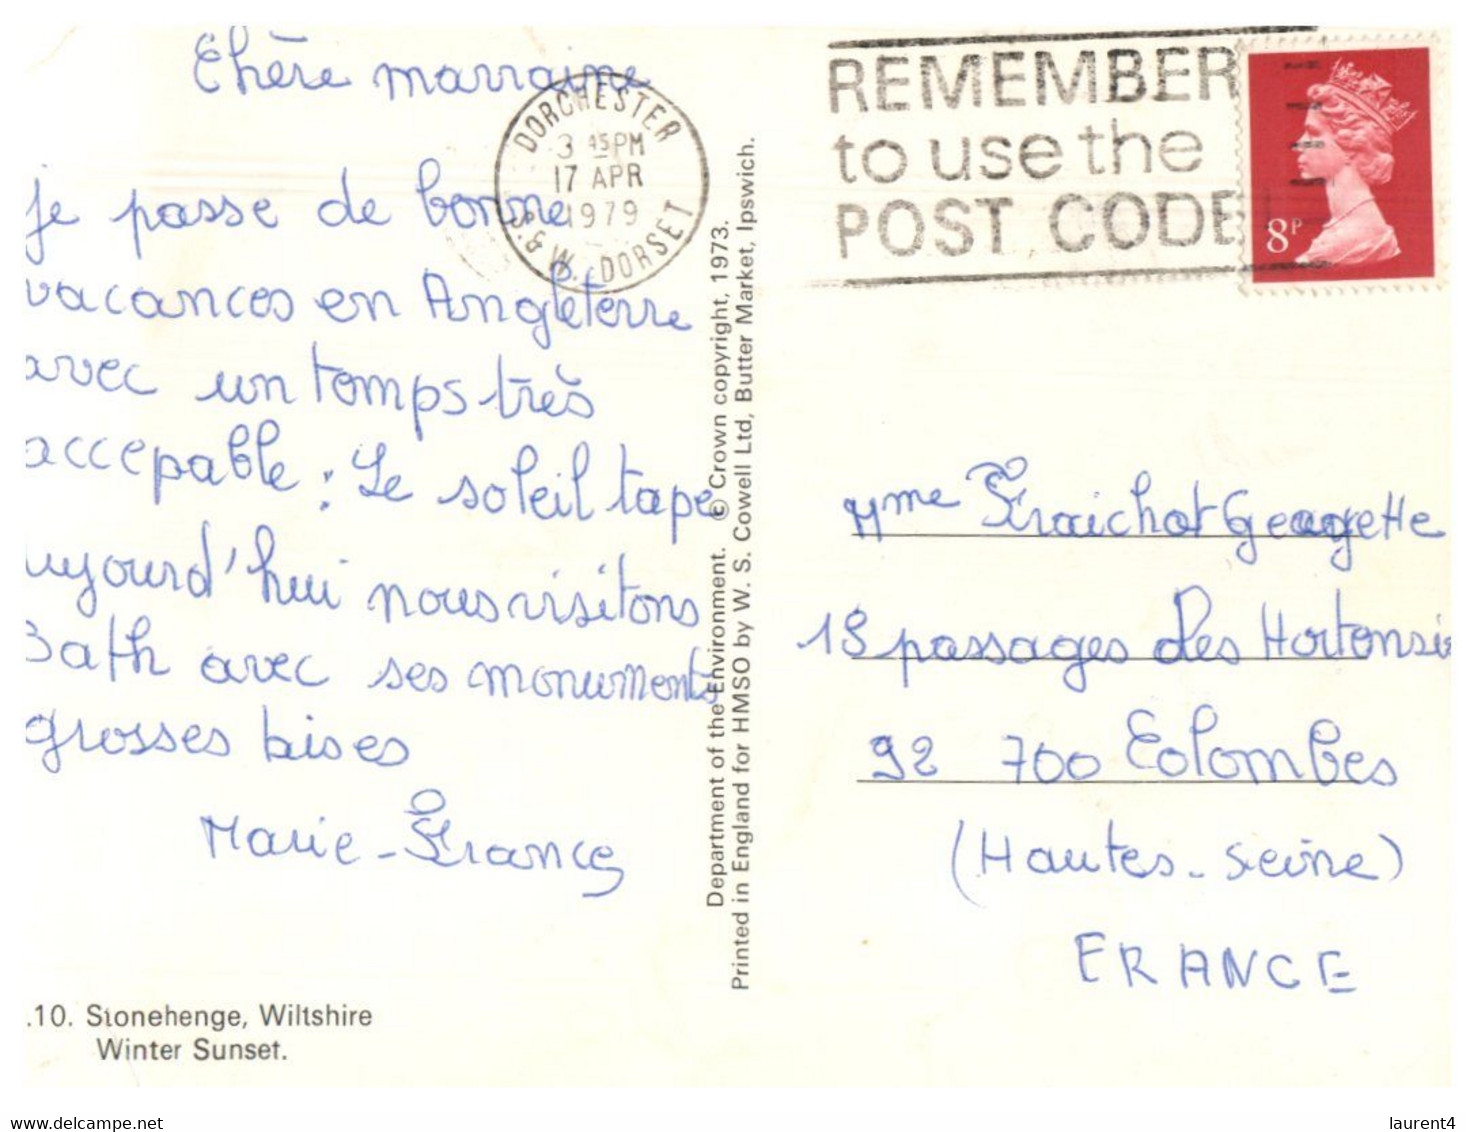 Chère marraine
je passe de bonne
vacances en Angleterre
avec un temps très
accepable : Le soleil tape
aujourd'hui nous visitons
Bath avec ses monuments
grosses bises
Marie-France
.10. Stonehenge, Wiltshire
Winter Sunset.
DORCHESTER
3 45 PM
17 APR
1979
S. & W. DORSET
Department of the Environment. © Crown copyright, 1973.
Printed in England for HMSO by W. S. Cowell Ltd, Butter Market, Ipswich.
REMEMBER
to use the
POST CODE
8P
Mme Fraichot Georgette
18 passages des Hortensi
92 700 Colombes
(Hautes-Seine)
FRANCE
laurent4